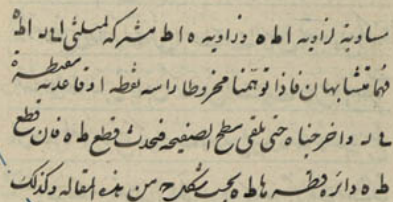 مساوية لزاوية ا ط ه وزاوية ه ا ط مشتركة لمثلثى ا ب د ا ط ه
فهما متشابهان فاذا توهمنا مخروطا راسه نقطه ا وقاعدته
ب د واخرجناه حتى تلقى سطح الصفيحه فيحدث قطع ط ه فان قطع
ط ه دائرة قطرها ط ه بحسب شكل ح من هذه المقالة وكذلك